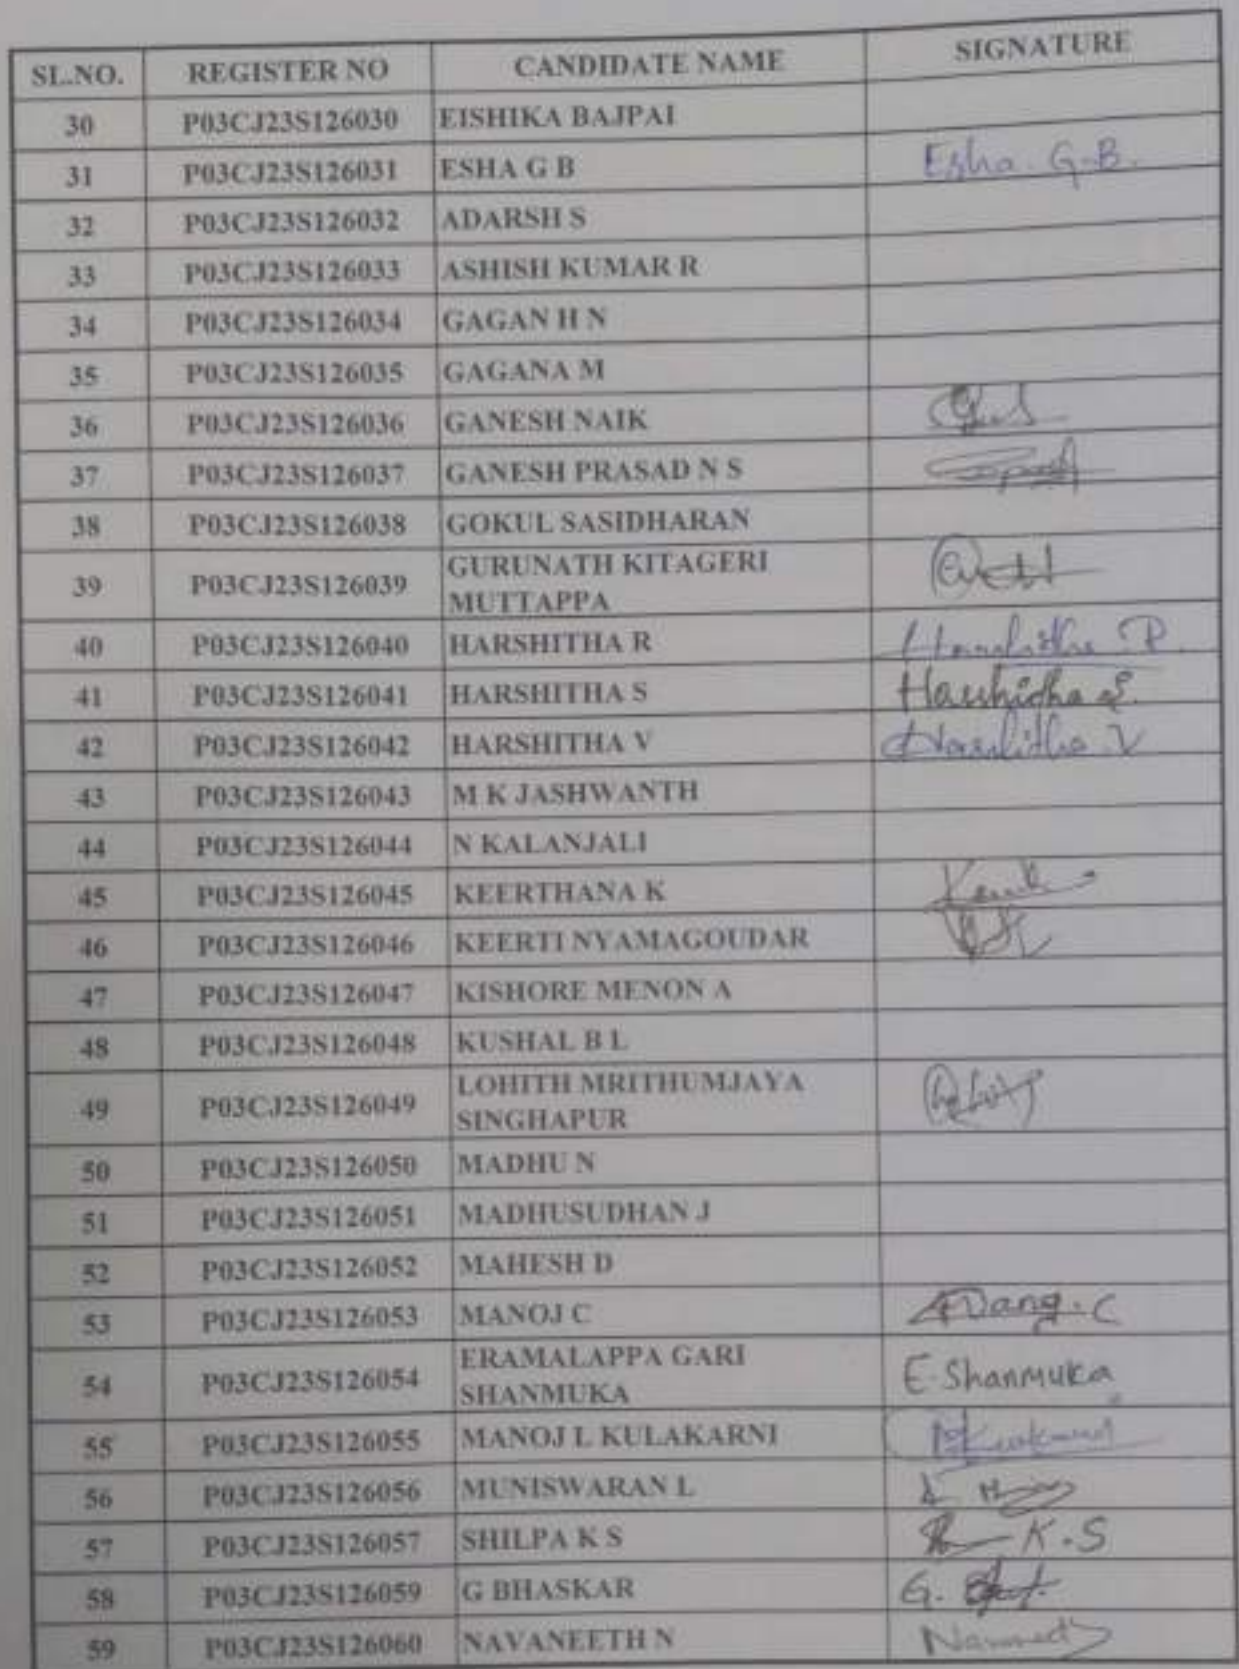 SL.NO. REGISTER NO CANDIDATE NAME SIGNATURE
30 P03CJ23S126030 EISHIKA BAJPAI
31 P03CJ23S126031 ESHA G B Esha. G.B.
32 P03CJ23S126032 ADARSH S
33 P03CJ23S126033 ASHISH KUMAR R
34 P03CJ23S126034 GAGAN H N
35 P03CJ23S126035 GAGANA M
36 P03CJ23S126036 GANESH NAIK
37 P03CJ23S126037 GANESH PRASAD N S
38 P03CJ23S126038 GOKUL SASIDHARAN
39 P03CJ23S126039 GURUNATH KITAGERI
MUTTAPPA
40 P03CJ23S126040 HARSHITHA R Harshitha R.
41 P03CJ23S126041 HARSHITHA S Harshidha S.
42 P03CJ23S126042 HARSHITHA V Harshitha V
43 P03CJ23S126043 M K JASHWANTH
44 P03CJ23S126044 N KALANJALI
45 P03CJ23S126045 KEERTHANA K
46 P03CJ23S126046 KEERTI NYAMAGOUDAR
47 P03CJ23S126047 KISHORE MENON A
48 P03CJ23S126048 KUSHAL B L
49 P03CJ23S126049 LOHITH MRITHUMJAYA
SINGHAPUR
50 P03CJ23S126050 MADHU N
51 P03CJ23S126051 MADHUSUDHAN J
52 P03CJ23S126052 MAHESH D
53 P03CJ23S126053 MANOJ C
54 P03CJ23S126054 ERAMALAPPA GARI
SHANMUKA E. Shanmuka
55 P03CJ23S126055 MANOJ L KULAKARNI
56 P03CJ23S126056 MUNISWARAN L
57 P03CJ23S126057 SHILPA K S K.S
58 P03CJ23S126059 G BHASKAR G.
59 P03CJ23S126060 NAVANEETH N